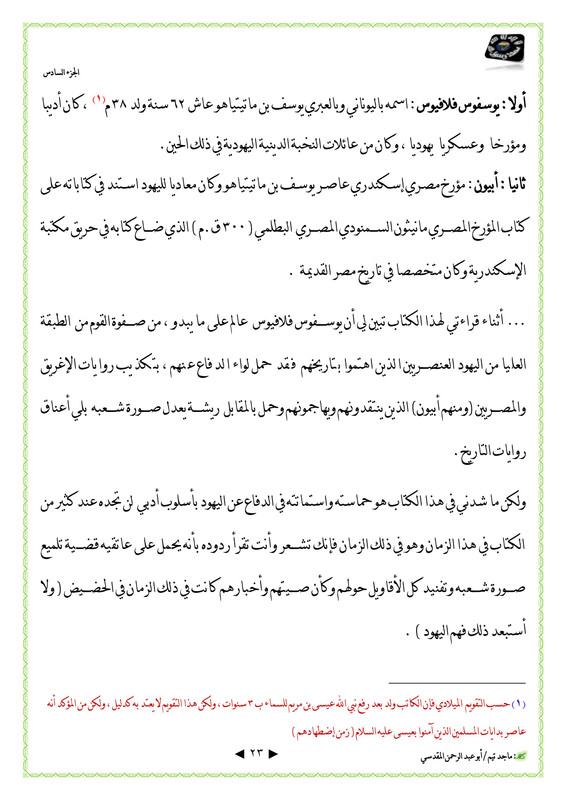 الجزء السادس
أولا : يوسفوس فلافيوس : اسمه باليوناني وبالعبري يوسف بن ماتيتياهو عاش ٦٢ سنة ولد ٣٨ م (١) ، كان أديبا
ومؤرخا وعسكريا يهوديا ، وكان من عائلات النخبة الدينية اليهودية في ذلك الحين .
ثانيا : أبيون : مؤرخ مصري إسكندري عاصر يوسف بن ماتيتياهو وكان معاديا لليهود استند في كتاباته على
كتاب المؤرخ المصري مانيثون السمنودي المصري البطلمي ( ٣٠٠ ق.م ) الذي ضاع كتابه في حريق مكتبة
الإسكندرية وكان متخصصا في تاريخ مصر القديمة .
... أثناء قراءتي لهذا الكتاب تبين لي أن يوسفوس فلافيوس عالم على ما يبدو ، من صفوة القوم من الطبقة
العليا من اليهود العنصريين الذين اهتموا بتاريخهم فقد حمل لواء الدفاع عنهم ، بتكذيب روايات الإغريق
والمصريين (ومنهم أبيون) الذين ينتقدونهم ويهاجمونهم وحمل بالمقابل ريشة يعدل صورة شعبه بلي أعناق
روايات التاريخ .
ولكن ما شدني في هذا الكتاب هو حماسته واستماتته في الدفاع عن اليهود بأسلوب أدبي لن تجده عند كثير من
الكتاب في هذا الزمان وهو في ذلك الزمان فإنك تشعر وأنت تقرأ ردوده بأنه يحمل على عاتقيه قضية تلميع
صورة شعبه وتفنيد كل الأقاويل حولهم وكأن صيتهم وأخبارهم كانت في ذلك الزمان في الحضيض ( ولا
أستبعد ذلك فهم اليهود ) .
(١) حسب التقويم الميلادي فإن الكاتب ولد بعد رفع نبي الله عيسى بن مريم للسماء ب ٣ سنوات ، ولكن هذا التقويم لا يعتد به كدليل ، ولكن من المؤكد أنه
عاصر بدايات المسلمين الذين آمنوا بعيسى عليه السلام ( زمن إضطهادهم )
: ماجد تيم / أبو عبد الرحمن المقدسي
◄ ٢٣ ►